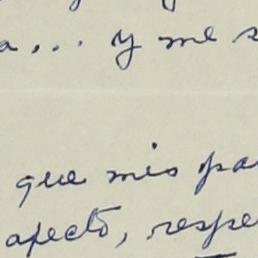 a... y me s
que mis pa
afecto, respe